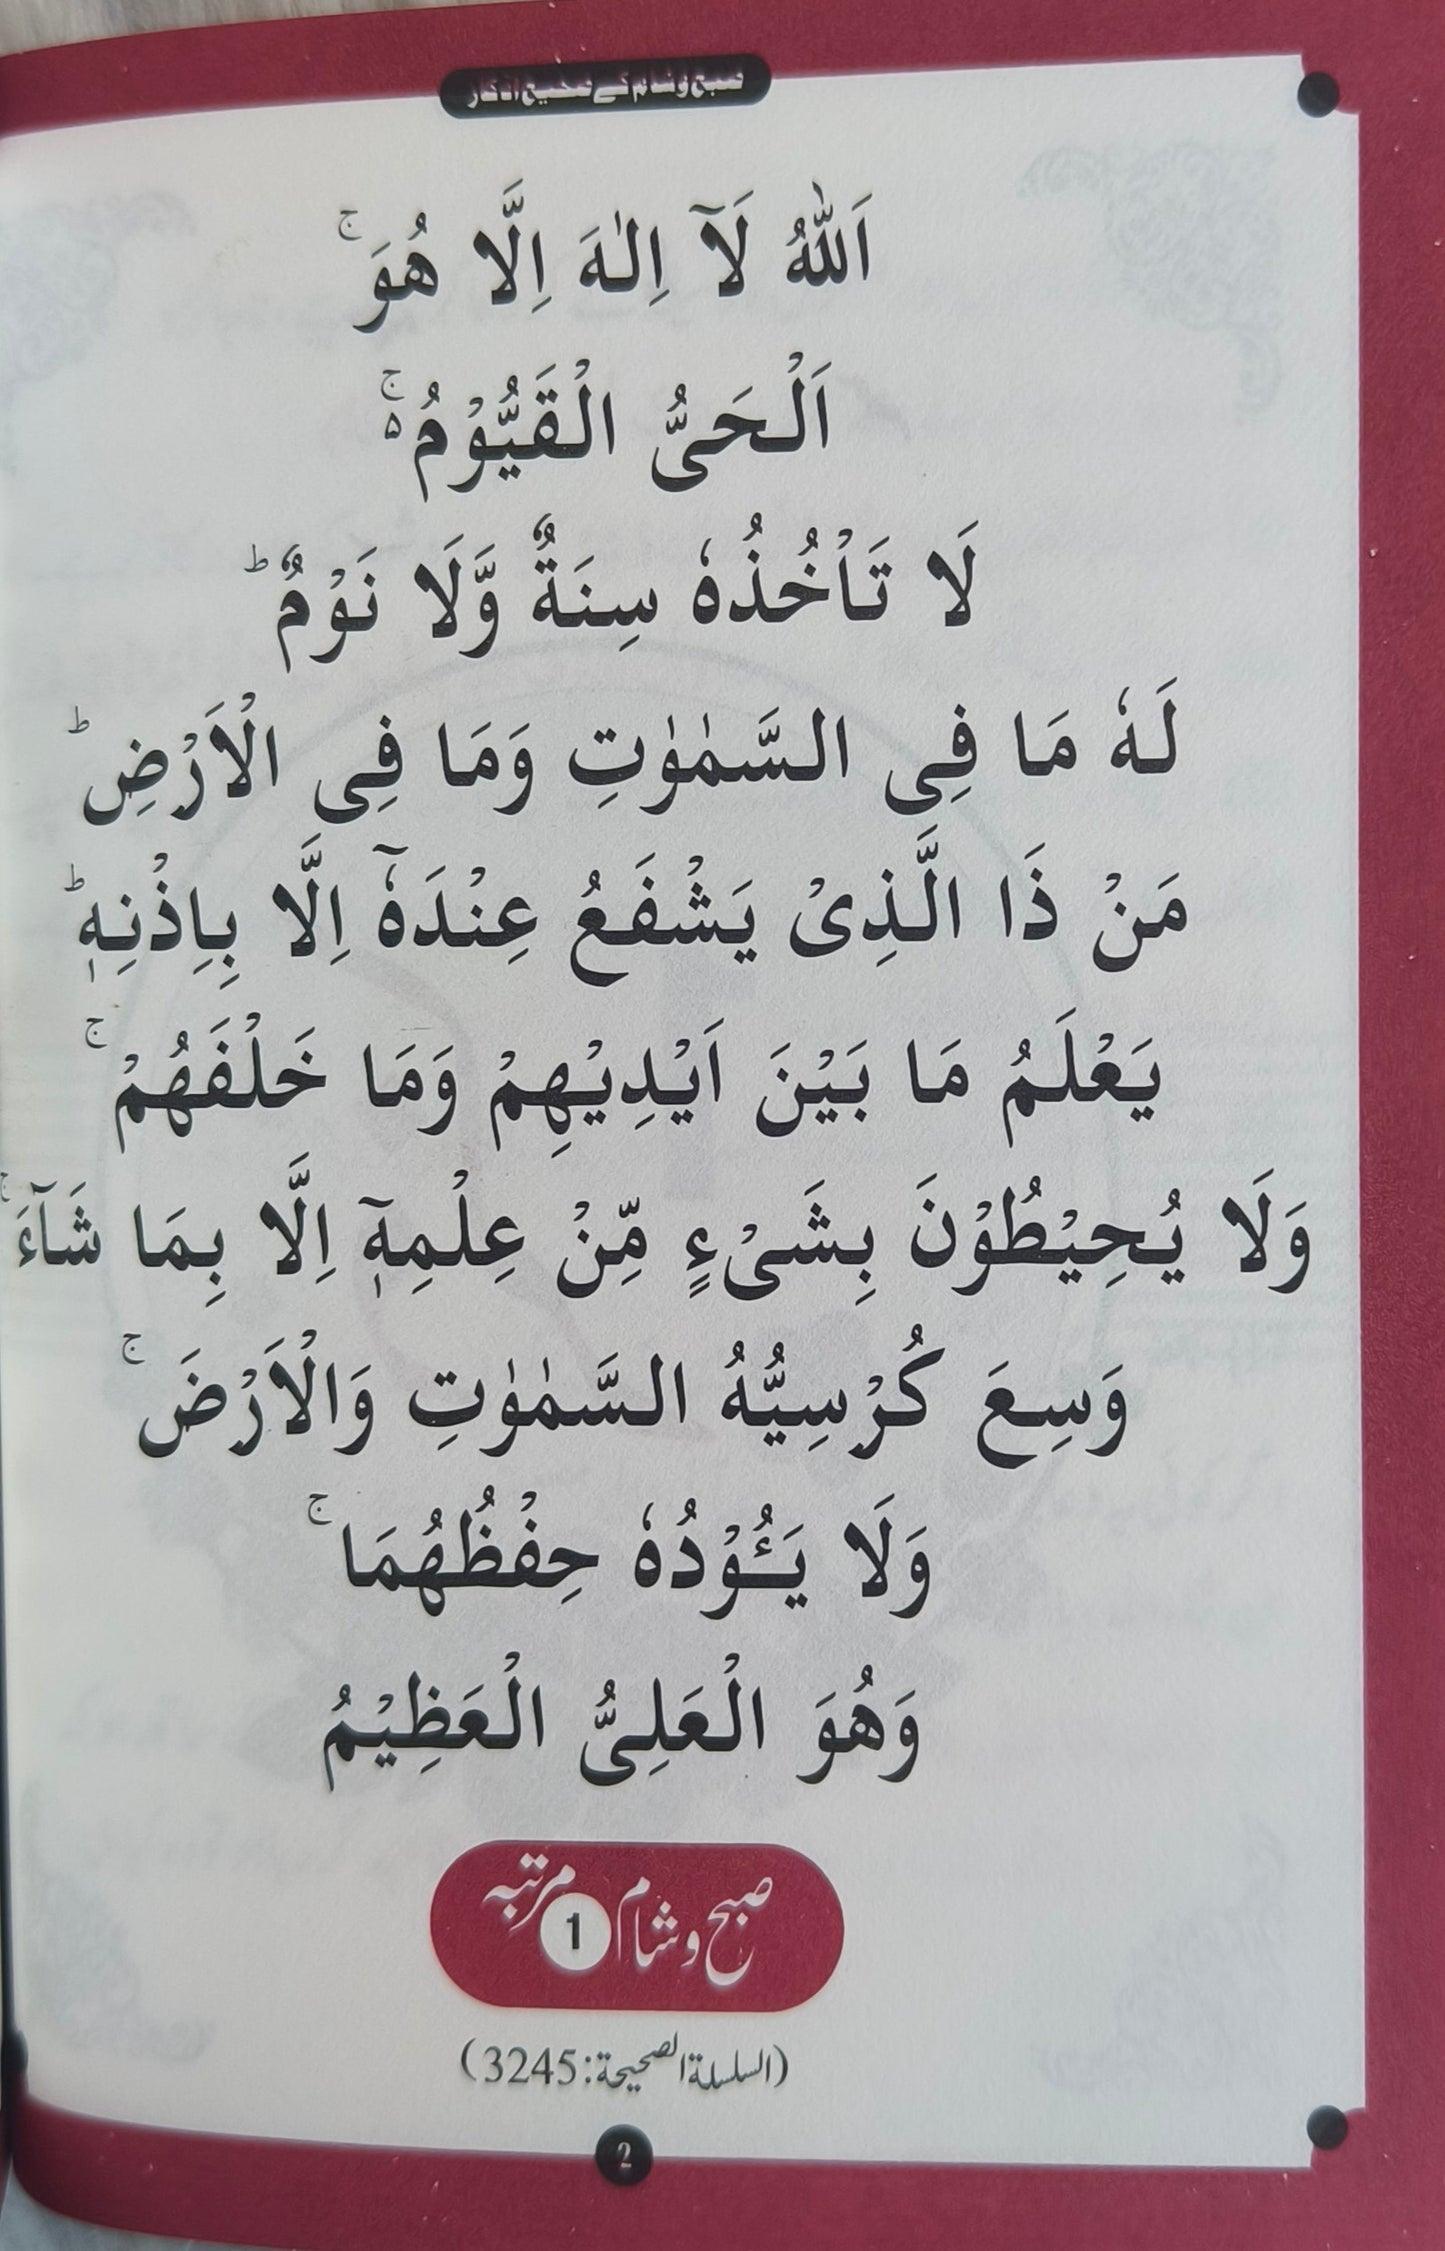 صبح و شام کے صحیح اذکار
اَللّٰهُ لَآ اِلٰهَ اِلَّا هُوَ ۚ
اَلْحَىُّ الْقَيُّوْمُ ۚ۵
لَا تَاْخُذُهٗ سِنَةٌ وَّلَا نَوْمٌ ؕ
لَهٗ مَا فِى السَّمٰوٰتِ وَمَا فِى الْاَرْضِ ؕ
مَنْ ذَا الَّذِىْ يَشْفَعُ عِنْدَهٗٓ اِلَّا بِاِذْنِهٖ ؕ
يَعْلَمُ مَا بَيْنَ اَيْدِيْهِمْ وَمَا خَلْفَهُمْ ۚ
وَلَا يُحِيْطُوْنَ بِشَىْءٍ مِّنْ عِلْمِهٖٓ اِلَّا بِمَا شَآءَ ۚ
وَسِعَ كُرْسِيُّهُ السَّمٰوٰتِ وَالْاَرْضَ ۚ
وَلَا يَـُٔوْدُهٗ حِفْظُهُمَا ۚ
وَهُوَ الْعَلِىُّ الْعَظِيْمُ
صبح و شام 1 مرتبہ
(السلسلة الصحيحة: 3245)
2